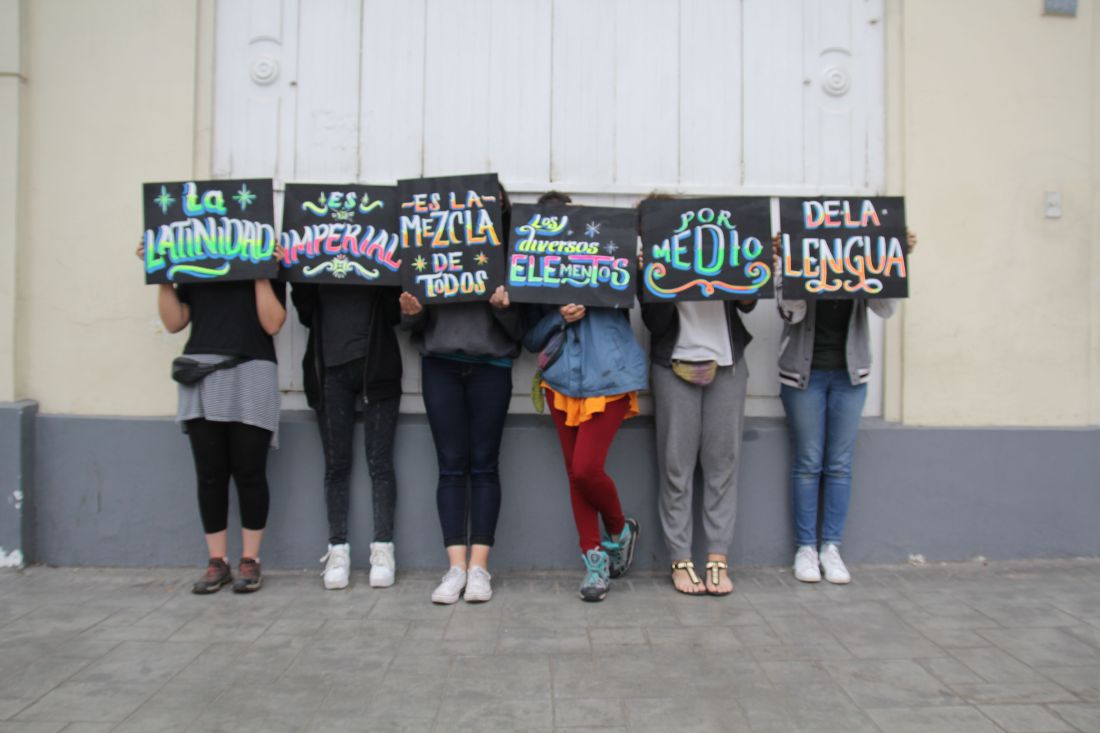 La
LATINIDAD
ES
IMPERIAL
~ES LA~
MEZCLA
DE
TODOS
LOS
diversos
ELEMENTOS
POR
MEDIO
DE LA
LENGUA